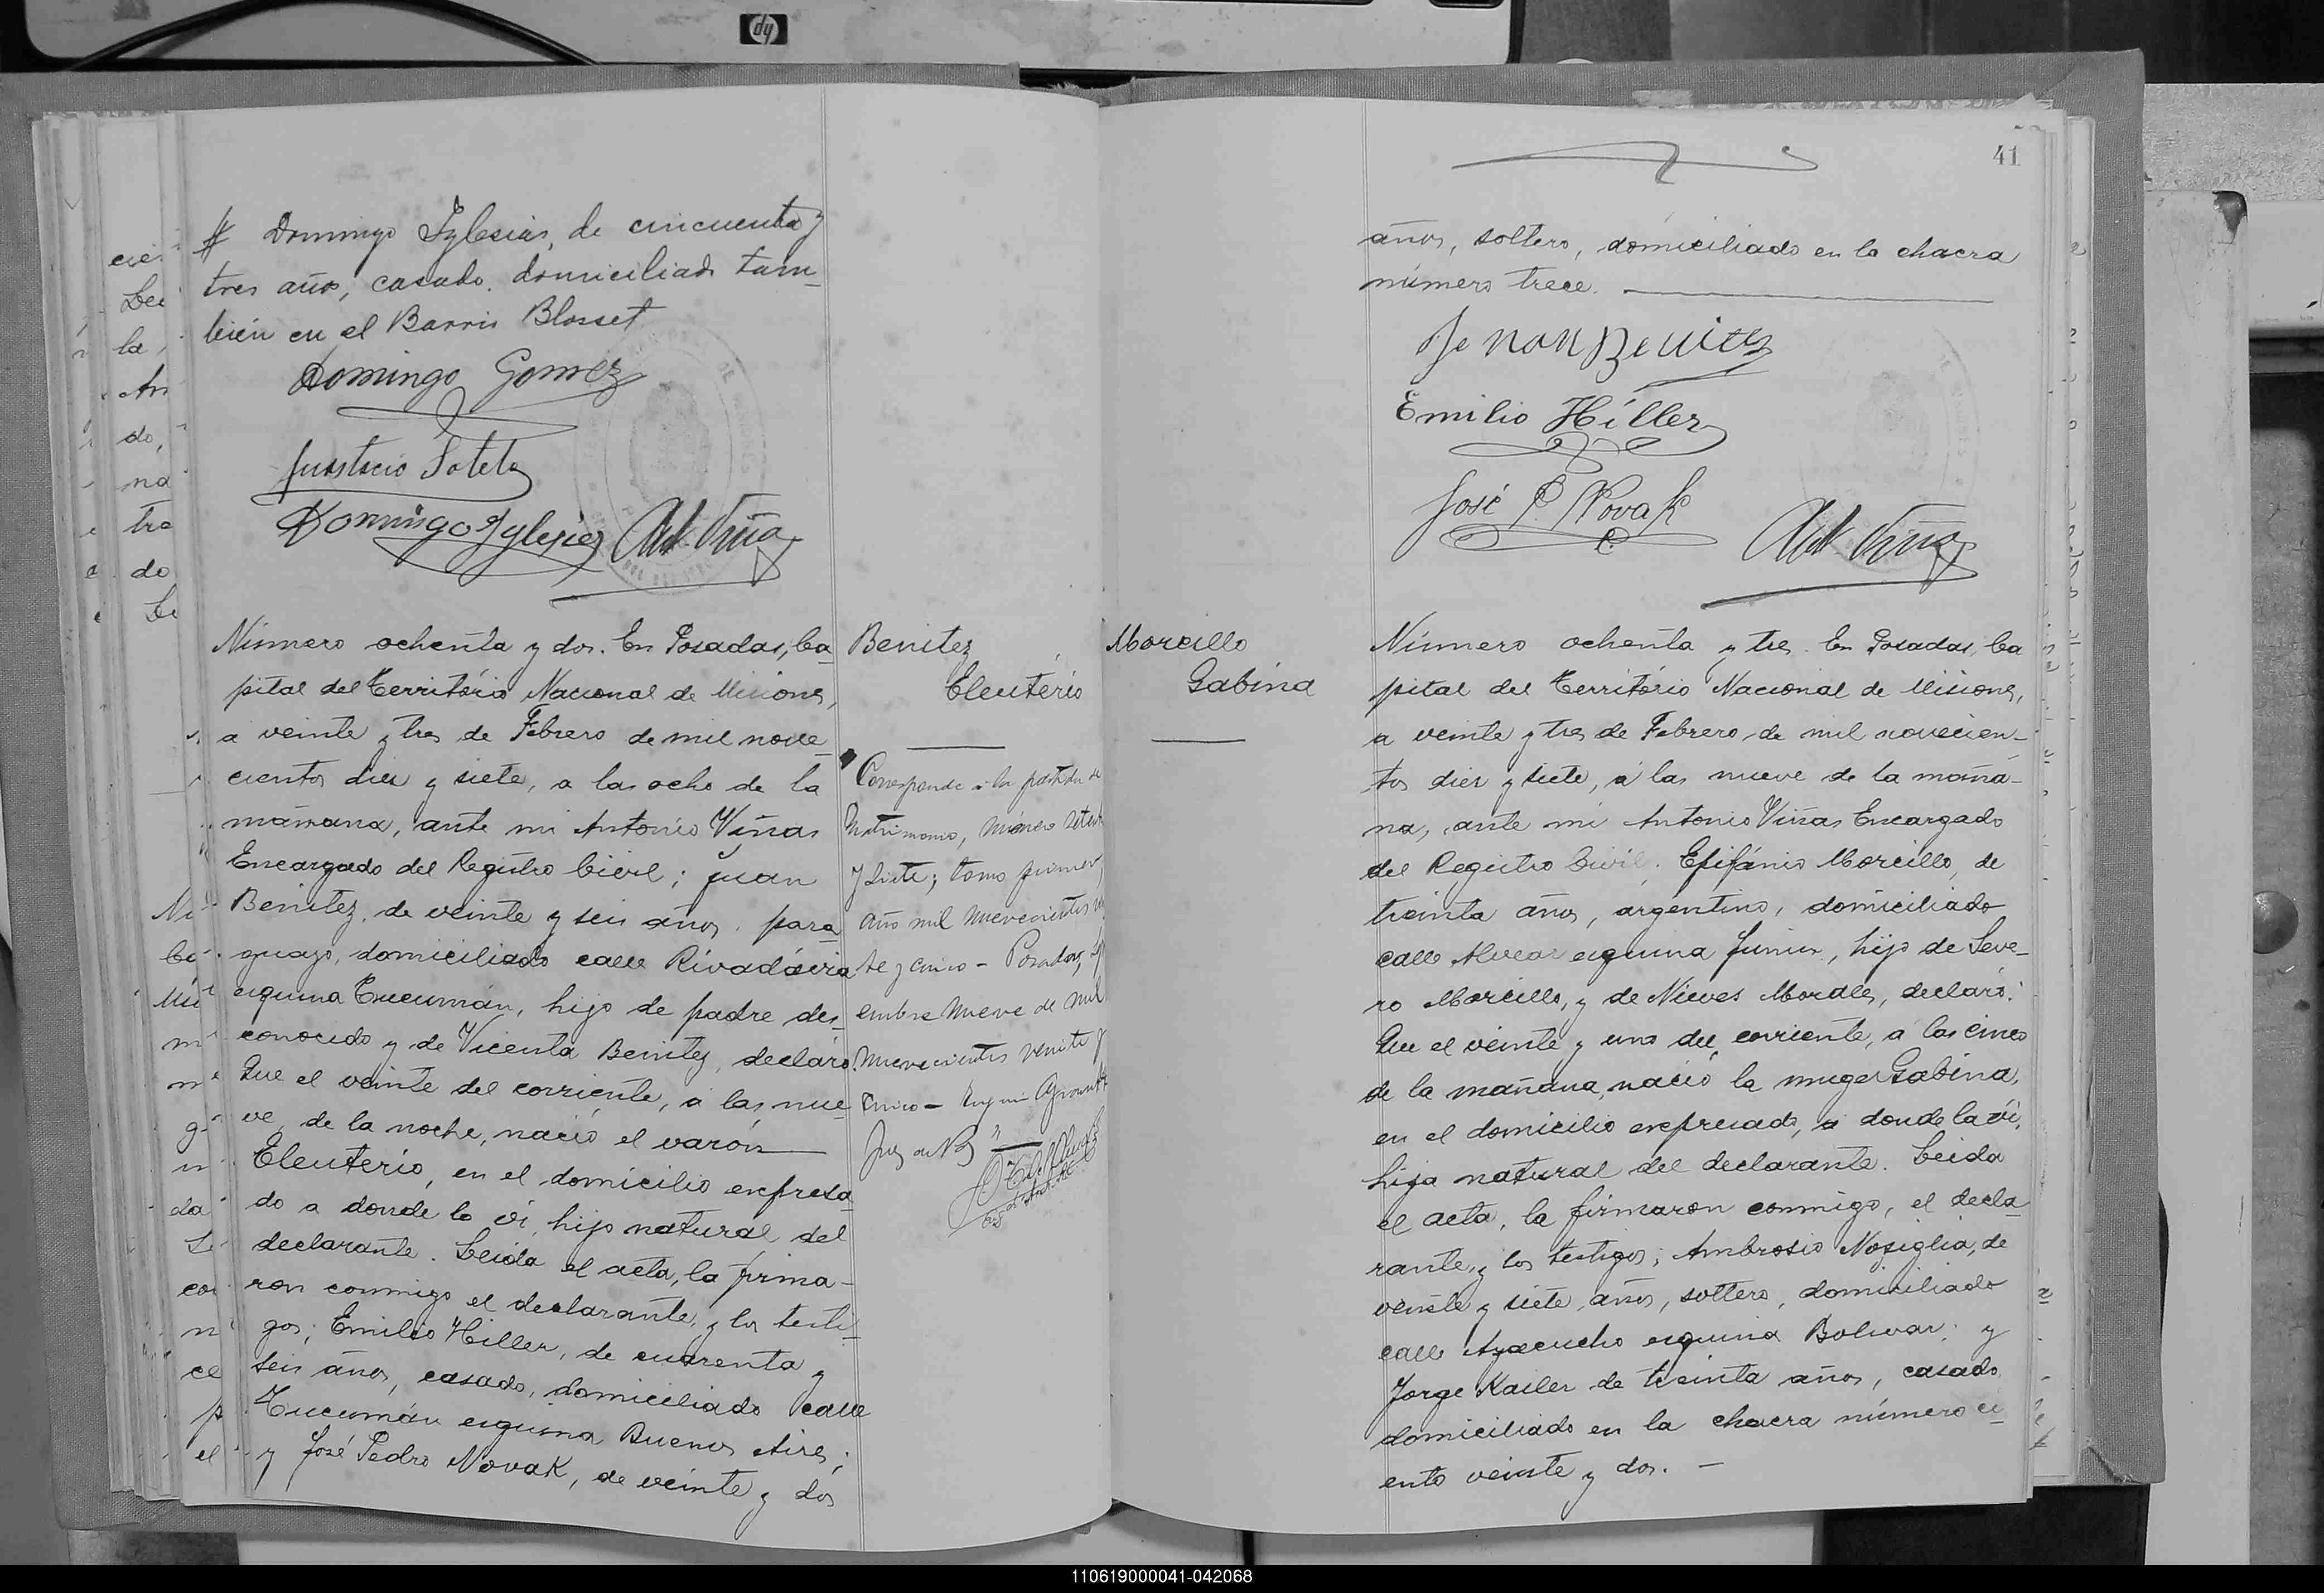 hp
# Domingo Iglesias, de cincuenta y
tres años, casado, domiciliado tam_
bién en el Barrio Blosset
Domingo Gomez
Eustacio Sotelo
Domingo Iglesias Ant Viñas
Número ochenta y dos. En Posadas, Ca_
pital del Território Nacional de Misiones,
a veinte y tres de Febrero de mil nove_
cientos diez y siete, a las ocho de la
mañana, ante mi Antonio Viñas
Encargado del Registro Civil; Juan
Benitez, de veinte y seis años, para_
guayo, domiciliado calle Rivadávia
esquina Tucumán, hijo de padre des_
conocido y de Vicenta Benitez, declaró:
Que el veinte del corriente, a las nue_
ve, de la noche, nació el varón
Eleuterio, en el domicilio expresa_
do a donde lo ví, hijo natural del
declarante. Leida el acta, la firma-
ron conmigo el declarante, y los testi_
gos; Emilio Hiller, de cuarenta y
seis años, casado, domiciliado calle
Tucumán esquina Buenos Aires;
y José Pedro Novak, de veinte y dos
Benitez
Eleutério
Corresponde a la partida de
Matrimonio, número setenta
y siete; tomo primero
año mil nuevecientos vein
te y cinco - Posadas,
embre nueve de mil
nuevecientos veinte y
cinco -
41
años, soltero, domiciliado en la chacra
número trece.
Juan Benitez
Emilio Hiller
José P. Novak
Ant Viñas
Morcillo
Sabina
Número ochenta y tres. En Posadas, Ca
pital del Território Nacional de Misiones,
a veinte y tres de Febrero de mil novecien_
tos diez y siete, a las nueve de la maña-
na, ante mi Antonio Viñas Encargado
del Registro Civil. Epifánio Morcillo, de
treinta años, argentino, domiciliado
calle Alvear esquina Junin, hijo de Seve_
ro Morcillo, y de Nieves Morales, declaró:
Que el veinte y uno del corriente, a las cinco
de la mañana, nació la muger Sabina,
en el domicilio expresado, a donde la ví,
hija natural del declarante. Leida
el acta, la firmaron conmigo, el decla_
rante, y los testigos; Ambrosio Nosiglia, de
veinte y siete, años, soltero, domiciliado
calle Ayacucho esquina Bolivar; y
Jorge Kailer de treinta años, casado
domiciliado en la chacra número ci_
ento veinte y dos. -
110619000041-042068